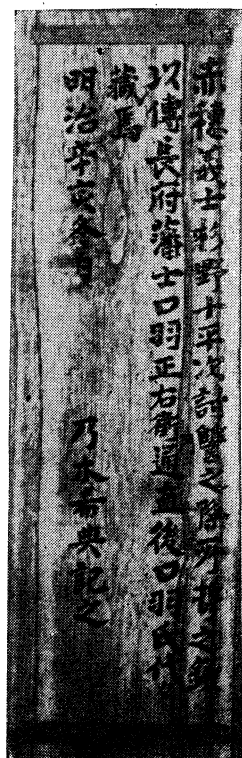 赤穂義士杉野十平次討讐之際所持之鎗
以傳長府藩士口羽正右衛通直後口羽氏代
藏焉
明治辛亥冬日　乃木希典記之